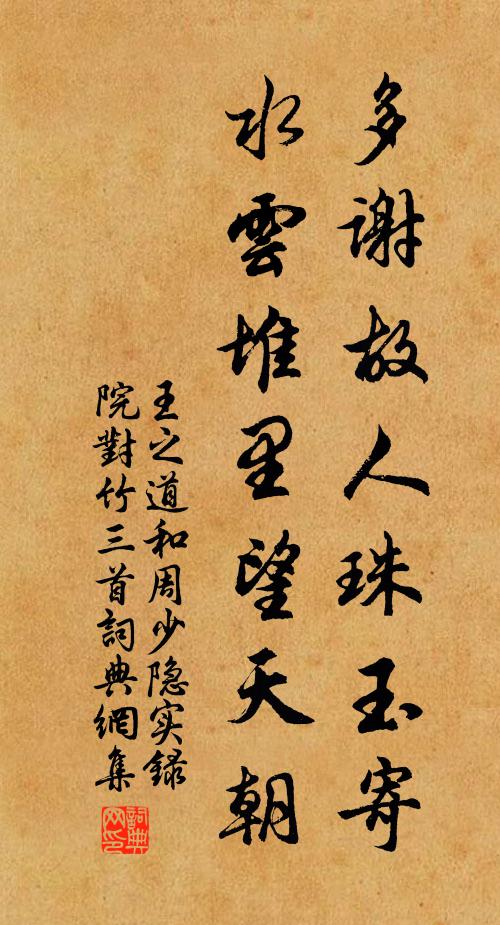 多谢故人珠玉寄
水雲堆里望天朝
王之道和周少隐实録
院對竹三首詞典網集
詞典网印